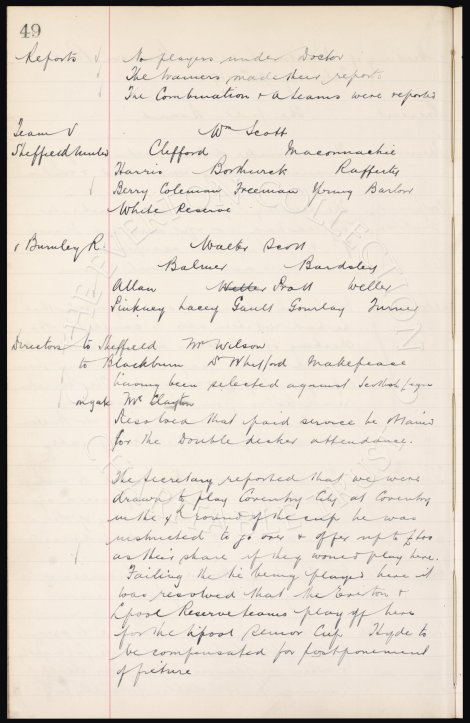 49
Reports √ No players under Doctor
The trainers made their reports
The Combination & A teams were reported
Team v Wm Scott
Sheffield United Clifford Maconnachie
Harris Borthwick Rafferty
Berry Coleman Freeman Young Barlow
White Reserve
v Burnley R. Walter Scott
Balmer Bardsley
Allan Weller Pratt Weller
Pinkney Lacey Gault Gourlay Turner
Directors to Sheffield Mr Wilson
to Blackburn Dr Whitford Makepeace
having been selected against Scottish
Mr Clayton
Resolved that paid service be
for the Double decker attendance.
The Secretary reported that we were
drawn to play Coventry City at Coventry
in the 4th round of the cup he was
instructed to go over & offer up to
as their share if they would play here.
Failing the tie being played here it
was resolved that the Everton &
Lpool Reserve teams play off here
for the Lpool Senior Cup Hyde to
be compensated for postponement
of fixture
THE EVERTON COLLECTION